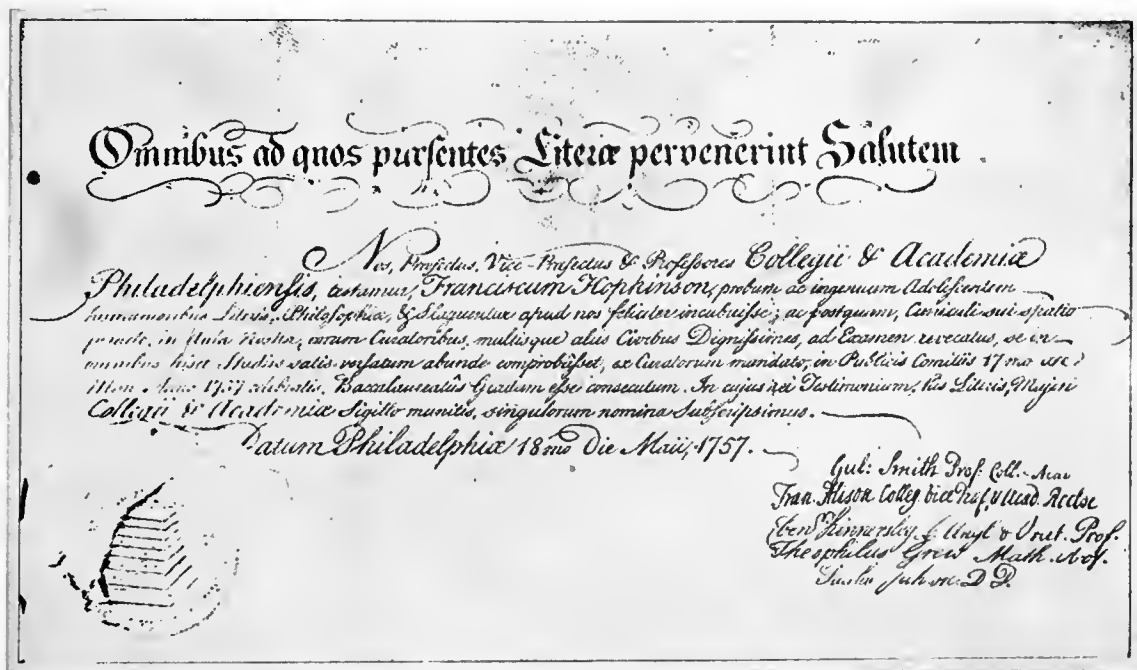 Omnibus ad quos purſentes Literæ pervenerint Salutem
Nos, Præfectus, Vice-Præfectus & Profeſsores Collegii & Academiæ
Philadelphienſis, testamur, Franciscum Hopkinson, probum ac ingenuum Adoleſcentem
humanioribus Literis, Philoſophiæ, & Eloquentiæ apud nos feliciter incubuiſse; ac postquam, Curriculi sui spatio
in Aula Nostra, coram Curatoribus, multisque aliis Civibus Digniſsimis, ad Examen revocatus, se in
omnibus hisce Studiis satis versatum abunde comprobâſset, ex Curatorum mandato, in Publicis Comitiis 17mo
Anno 1757 celebratis, Baccalaureatûs Gradum eſse consecutum. In cujus rei Testimonium, his Literis, Majori
Collegii & Academiæ Sigillo munitis, singulorum nomina Subſcripsimus.
Datum Philadelphiæ 18mo Die Maii, 1757.
Gul: Smith Præf: Coll:
Fran. Alison Colleg. Vice Præf. & Acad. Rector
Eben.r Kinnersley, L. Angl. & Orat. Prof.
Theophilus Grew Math. Prof.